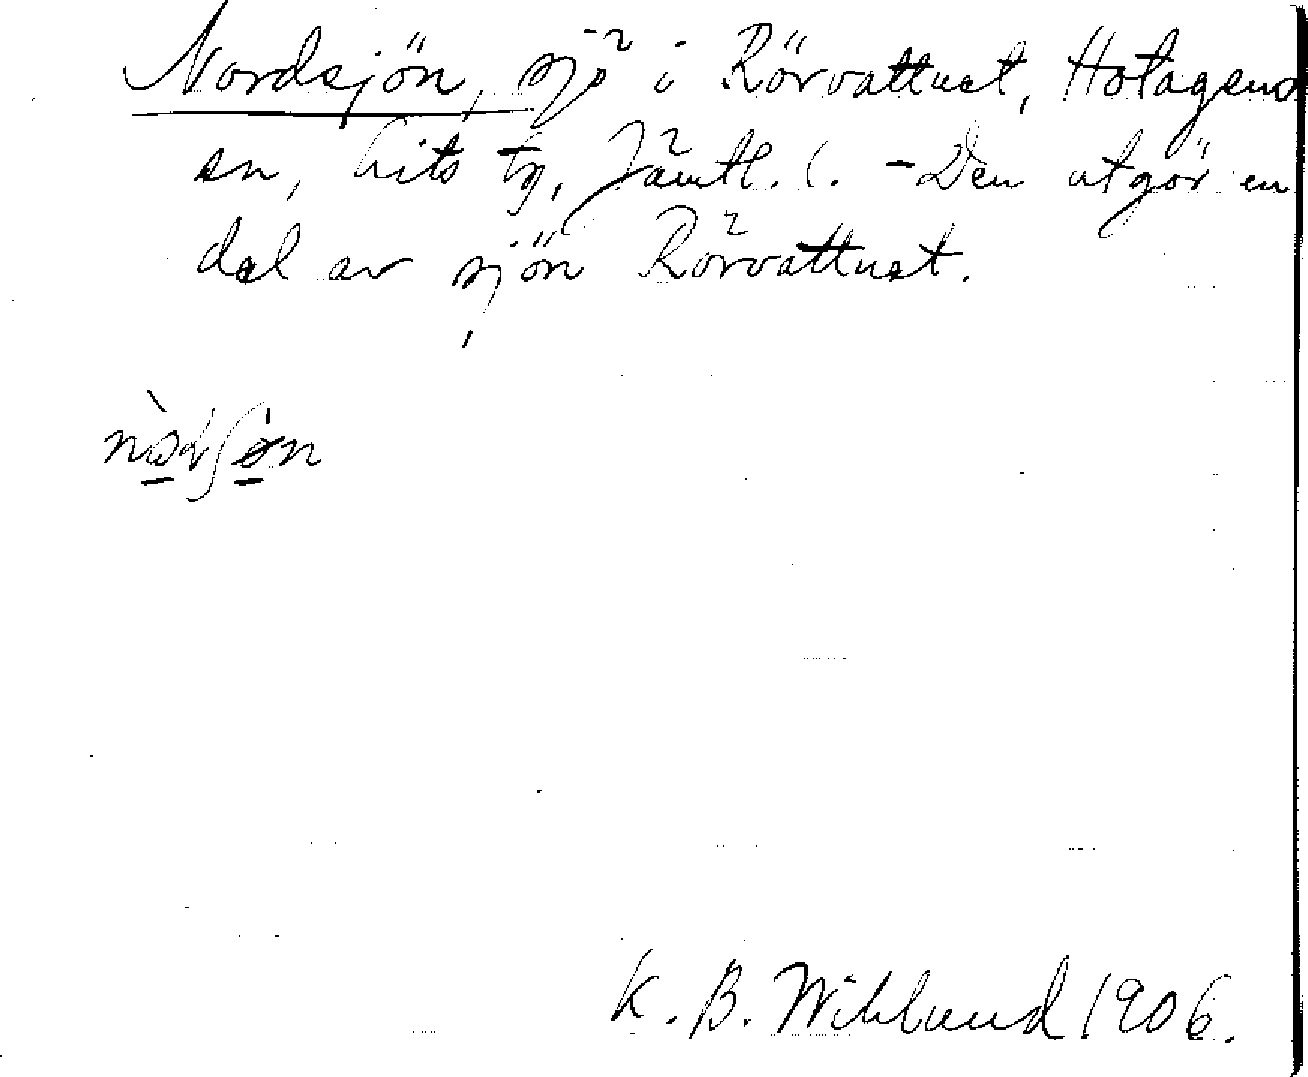 Nordsjön, sjö i Rörvattnet, Hotagens
sn, Lits tg, Jämtl. l. - Den utgör en
del av sjön Rörvattnet.
nò̠rʃø̠n
K. B. Wiklund 1906.